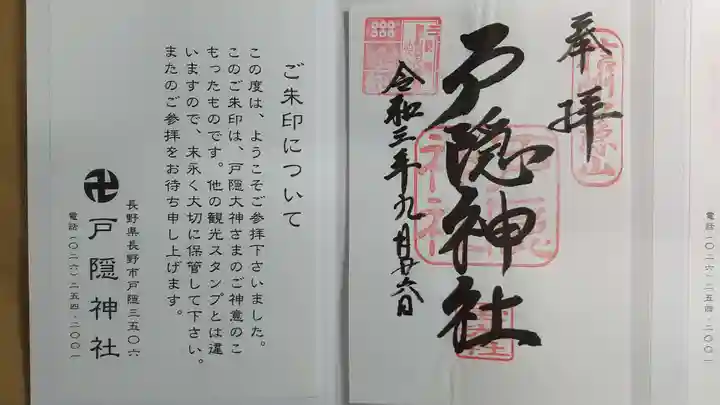 奉拝
戸隠神社
令和三年九月廿六日
ご朱印について
この度は、ようこそご参拝下さいました。
このご朱印は、戸隠大神さまのご神意のこ
もったものです。他の観光スタンプとは違
いますので、末永く大切に保管して下さい。
またのご参拝をお待ち申し上げます。
長野県長野市戸隠三五〇六
卍戸隠神社
電話(〇二六)二五四-二〇〇一